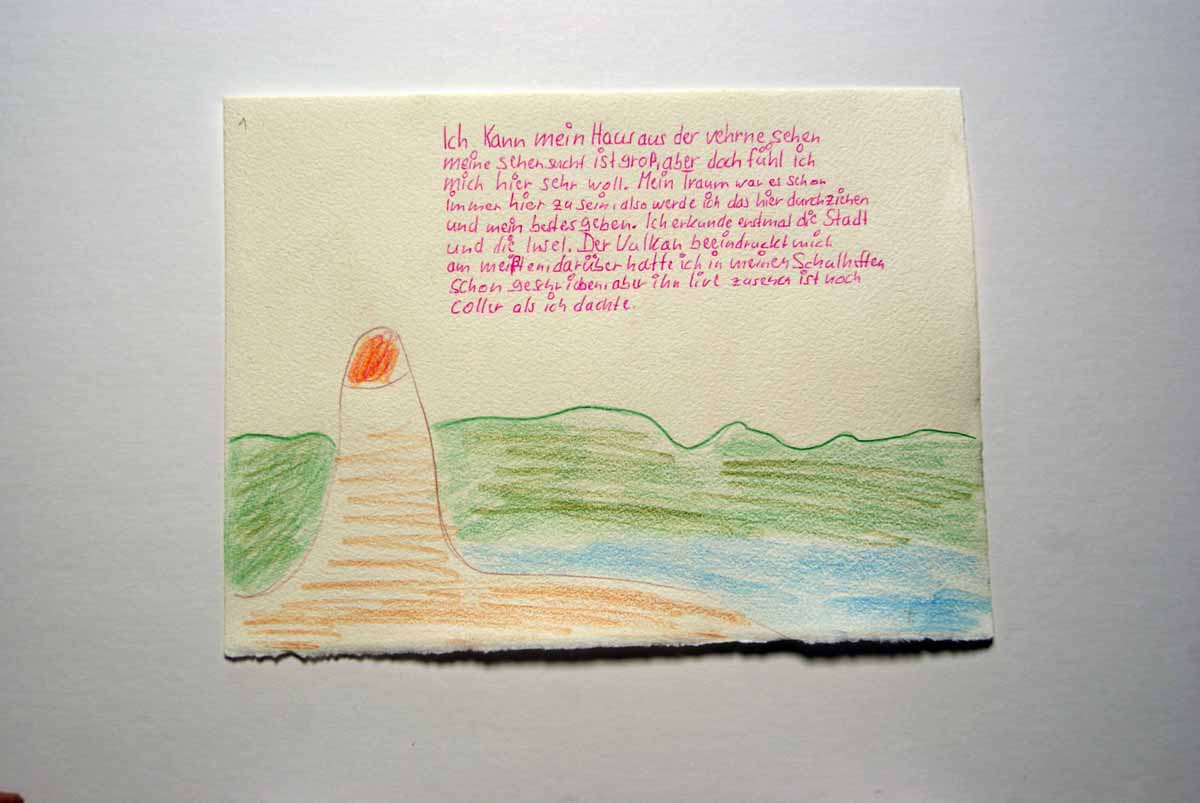 1
Ich Kann mein Haus aus der vehrne sehen
meine sehensucht ist groß, aber doch fühl ich
mich hier sehr woll. Mein Traum war es schon
immer hier zu sein, also werde ich das hier durchziehen
und mein bestes geben. Ich erkunde erstmal die Stadt
und die Insel. Der Vulkan beeindruckt mich
am meißten, darüber hatte ich in meinen Schulheften
schon geschrieben, aber ihn live zusehen ist noch
coller als ich dachte.